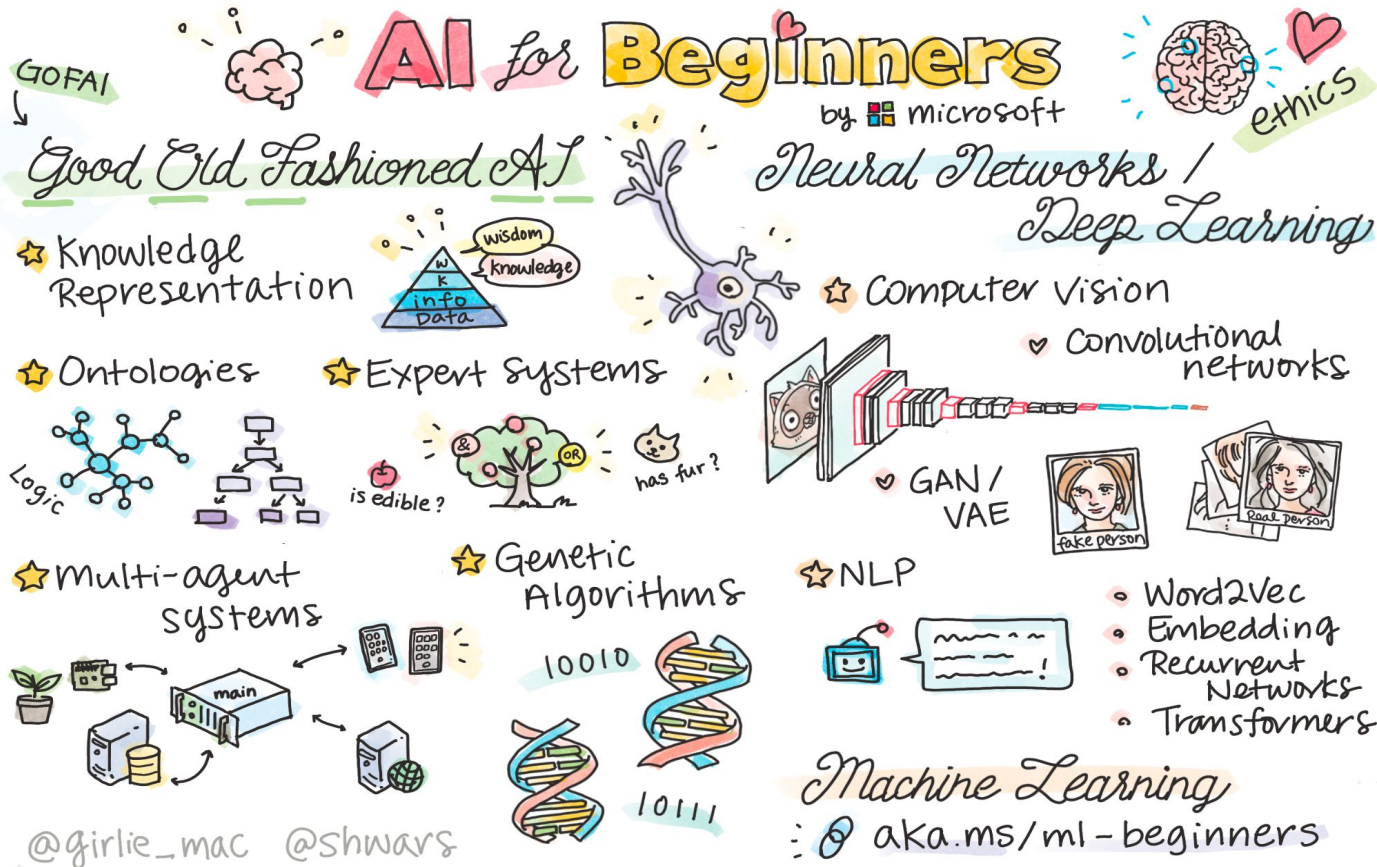 AI for Beginners
by microsoft
ethics
GOFAI
Good Old Fashioned AI
Knowledge
Representation
wisdom
knowledge
W
K
info
Data
Ontologies
Logic
Expert Systems
&
OR
is edible?
has fur?
Multi-agent
systems
main
Genetic
Algorithms
10010
10111
Neural Networks /
Deep Learning
Computer Vision
Convolutional
networks
GAN /
VAE
fake person
Real person
NLP
!
Word2Vec
Embedding
Recurrent
Networks
Transformers
Machine Learning
aka.ms/ml-beginners
@girlie_mac @shwars